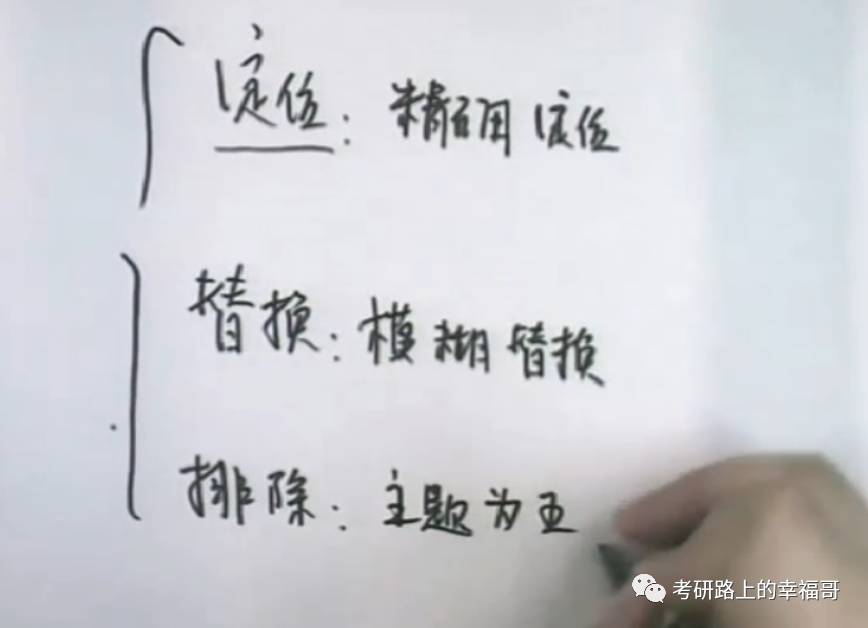 定位：精确定位
替换：模糊替换
排除：主题为王
考研路上的幸福哥